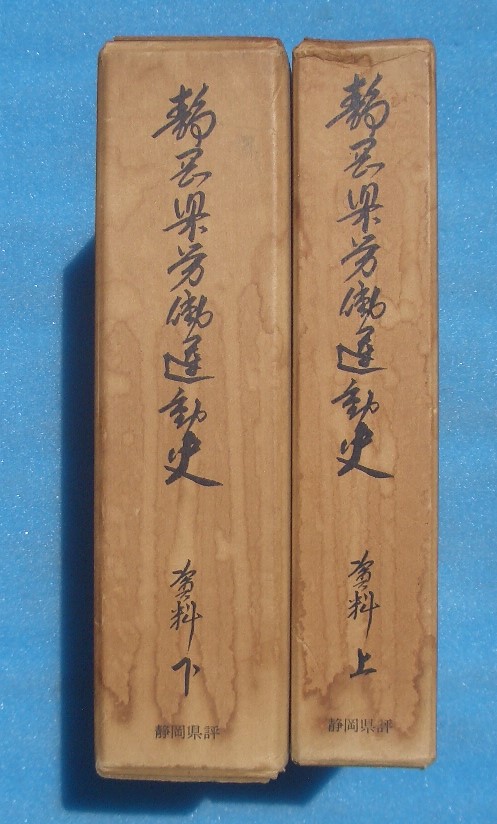 静岡県労働運動史
資料 上
静岡県評
静岡県労働運動史
資料 下
静岡県評